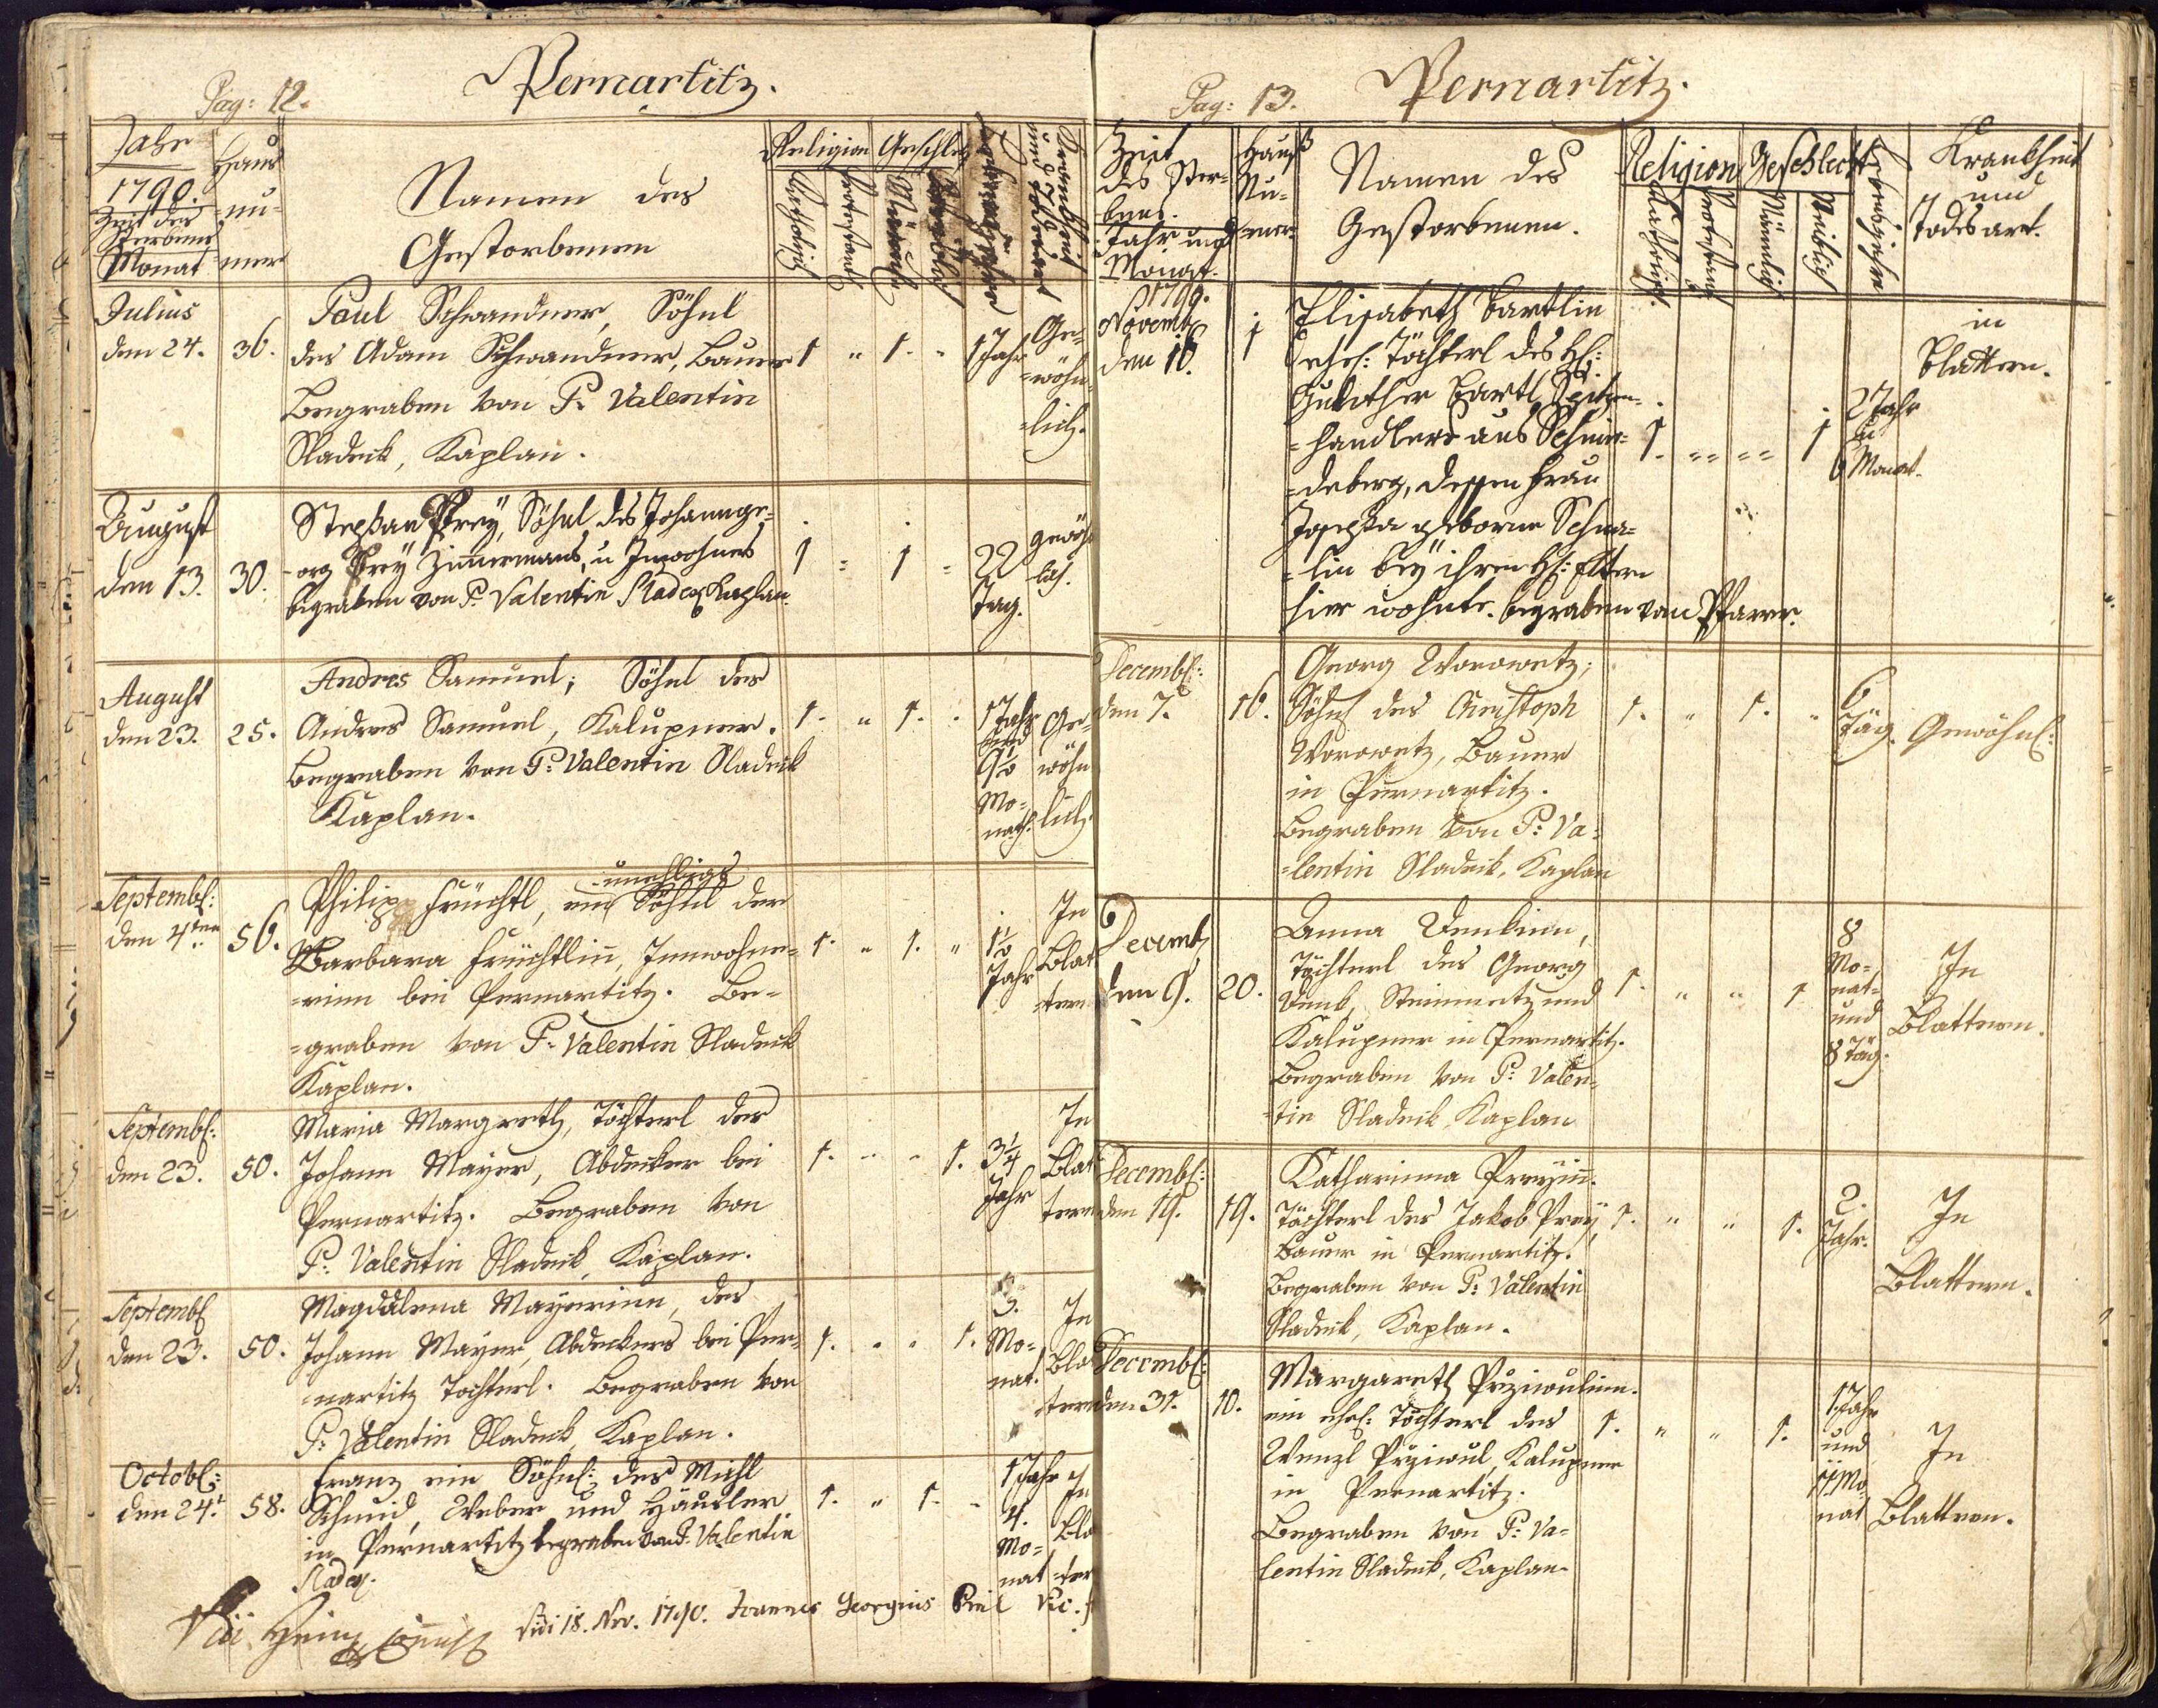 Pag: 12.
Pernartitz.
Jahr
1790.
Zeit des
Sterbens
Monat
Haus
nu-
mer
Namen des
Gestorbenen
Religion
Katholisch
Protestant
Geschlecht
Männlich
Julius
den 24.
36.
Paul Schwandner, Söhnl
des Adam Schwandner, Bauer
Begraben von P. Valentin
Sladeck, Kaplan.
1 " 1. "
1 Jahr
Ge-
=wöhn
=lich.
August
den 13.
30.
Stephan Prey, Söhnl des Johannge-
-org Prey Zimmermans, u Innwohners
begraben von P. Valentin Sladeck Kaplan.
1 = 1 =
22
Tag.
gewöhn
lich.
August
den 23.
25.
Andres Samuel; Söhnl des
Andres Samuel, Kalupner.
Begraben von P: Valentin Sladeck
Kaplan.
1. " 1. "
1 Jahr
und
9½
Mo-
nath.
Ge-
wöhn
lich.
Septembl:
den 4ten
56.
unehliges
Philipp Früchtl, ein Söhnl der
Barbara Früchtlin, Innwohne-
=rinn bei Pernartitz. Be-
=graben von P. Valentin Sladeck
Kaplan.
1. " 1. "
1½
Jahr
In
Blat
tern
Septembl:
den 23.
50.
Maria Margreth, Töchterl des
Johann Mayer, Abdecker bei
Pernartitz. Begraben von
P: Valentin Sladeck, Kaplan.
1. " " 1.
3¼
Jahr
In
Blat
tern
Septembl
den 23.
50.
Magdalena Mayerinn, des
Johann Mayer, Abdeckers bei Per-
nartitz Töchterl. Begraben von
P: Valentin Sladeck, Kaplan.
1. " " 1.
3.
Mo-
nat.
In
Blat
tern
Octobl:
den 24t
58.
Franz ein Söhnl: des Michl
Schmid, Weber und Häusler
in Pernartitz begraben von P. Valentin
Sladeck.
1. " 1. "
1 Jahr
4.
Mo-
nat
In
Bla
-ter
Vidi 18. Nov. 1790. Joannes Georgius
Pag: 13.
Pernartitz.
Zeit
des Ster-
bens.
Jahr und
Monat.
Hauß
Nu-
mer.
Namen des
Gestorbenen.
Religion
Katholisch.
Protestant
Geschlecht
Männlich
Weiblich
Lebensjahre
Krankheit
und
Todesart.
1790.
Novemb
den 16.
1
Elisabeth Bartlin
ehel: Töchterl des H:
Bartl, Spitzen-
=handlers aus Schmie-
=deberg, dessen Frau
Josepha geborne
=lin bey ihren H: Eltern
hier wohnte. begraben von Pfarrer.
1. " " " " 1
2 Jahr
u
6 Monat.
in
Blattern.
Decembl:
den 7.
16.
Georg Worowetz,
Söhnl des Christoph
Worowetz, Bauer
in Pernartitz.
Begraben von P: Va-
=lentin Sladeck, Kaplan
1. " 1. "
6
Täg.
Gewöhnl:
Decemb
den 9.
20.
Anna Denkinn,
Töchterl des Georg
Denk, Steinmetz und
Kalupner in Pernartitz.
Begraben von P: Valen-
tin Sladeck, Kaplan
1. " " 1
8
Mo-
nat-
und
8 Täg.
In
Blattern.
Decembl:
den 19.
19.
Katharinna Preyin.
Töchterl des Jakob Prey,
Bauer in Pernartitz.
Begraben von P: Valentin
Sladeck, Kaplan.
1. " " 1.
2.
Jahr.
In
Blattern.
Decembl:
den 31.
10.
Margareth Przinoulinn.
ein ehel: Töchterl des
Wenzl Przinoul, Kalupner
in Pernartitz.
Begraben von P: Va-
lentin Sladeck, Kaplan.
1. " " 1.
1 Jahr
und
11 Mo
nat
In
Blattern.